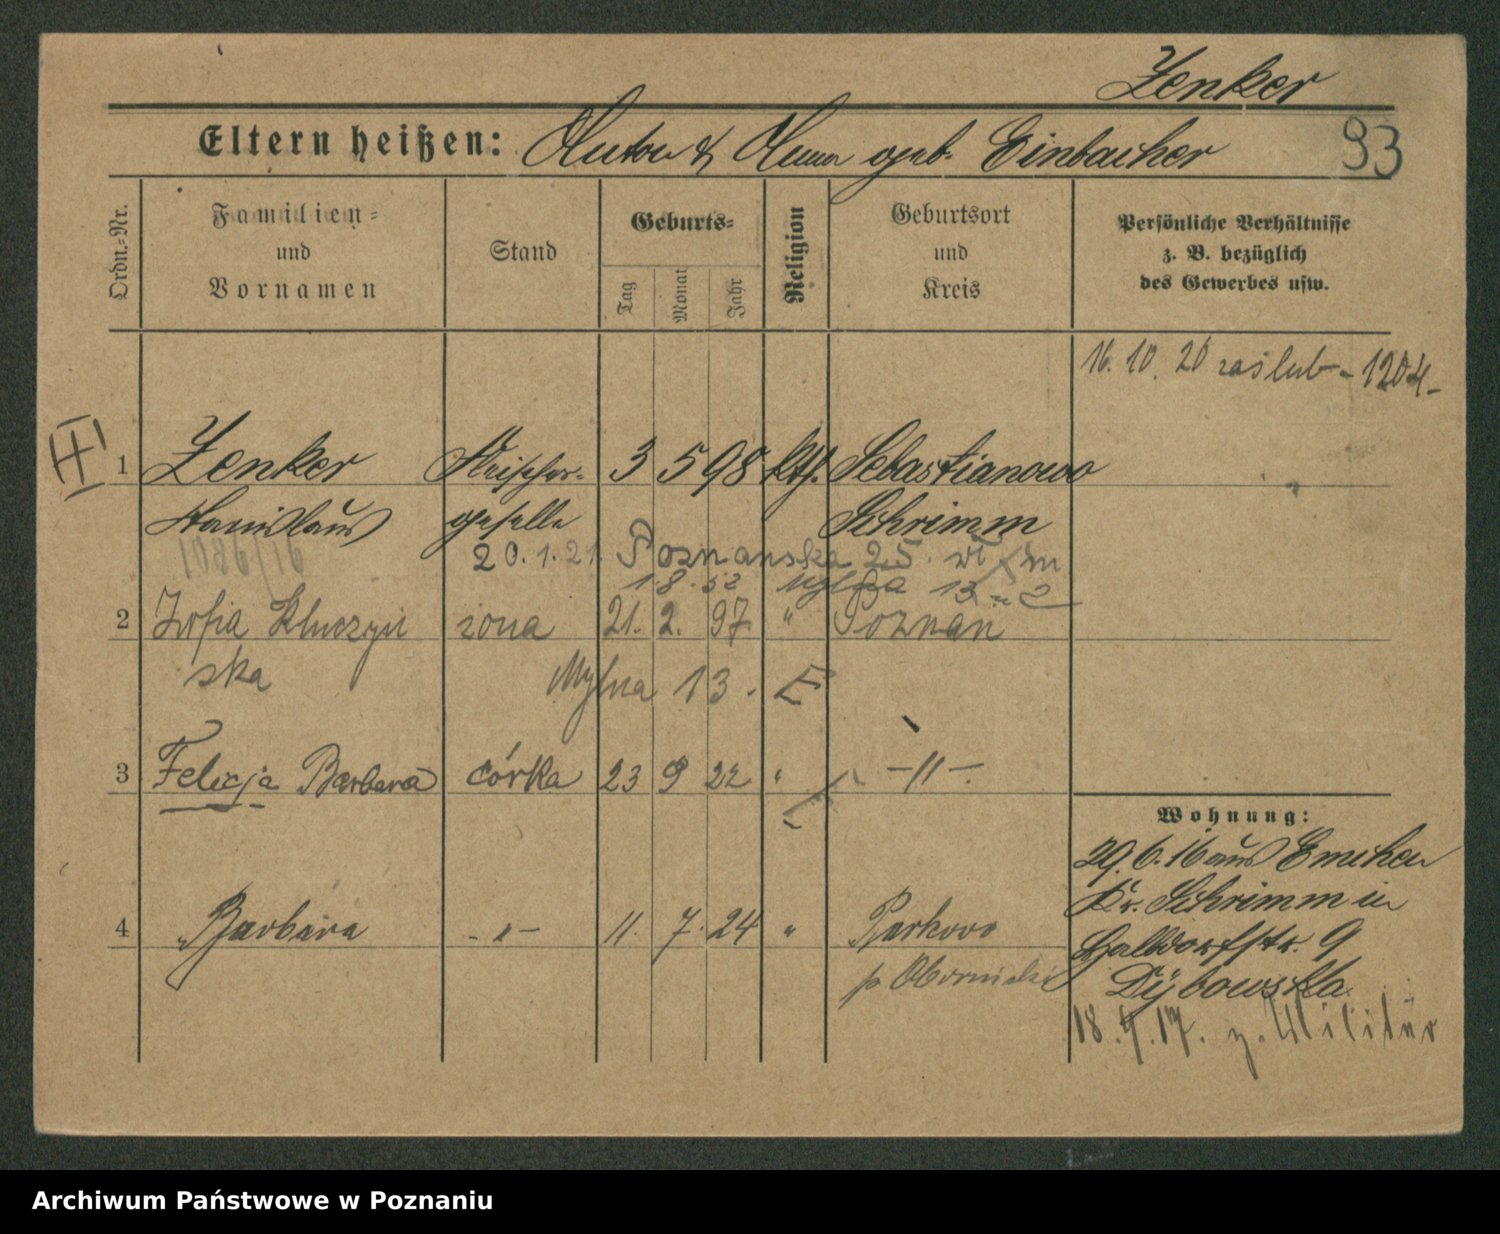 Zenker
Eltern heißen: Anton & Anna geb. Einbacher 93
Ordn.-Nr. Familien- und Vornamen Stand Geburts- Tag Monat Jahr Religion Geburtsort und Kreis Persönliche Verhältnisse z. B. bezüglich des Gewerbes usw.
16. 10. 20 zaślub - 1204 -
1 Zenker Fleischer- 3 5 98 kth. Sebastianowo
Stanislaus geselle Schrimm
20.1.21. Poznanska 25
1.8. Mylna 13
2 Zofia Kluczyń żona 21. 2. 97 " Poznan
ska Mylna 13. E
3 Felicja Barbara córka 23 9 22 " -"-
Wohnung:
29.6.16 aus Emchen
Kr. Schrimm in
4 Barbara -"- 11. 7. 24 " Parkowo
Halldorfstr. 9
p Obornicki
Dybowska
18.4.17. z. Militär
Archiwum Państwowe w Poznaniu